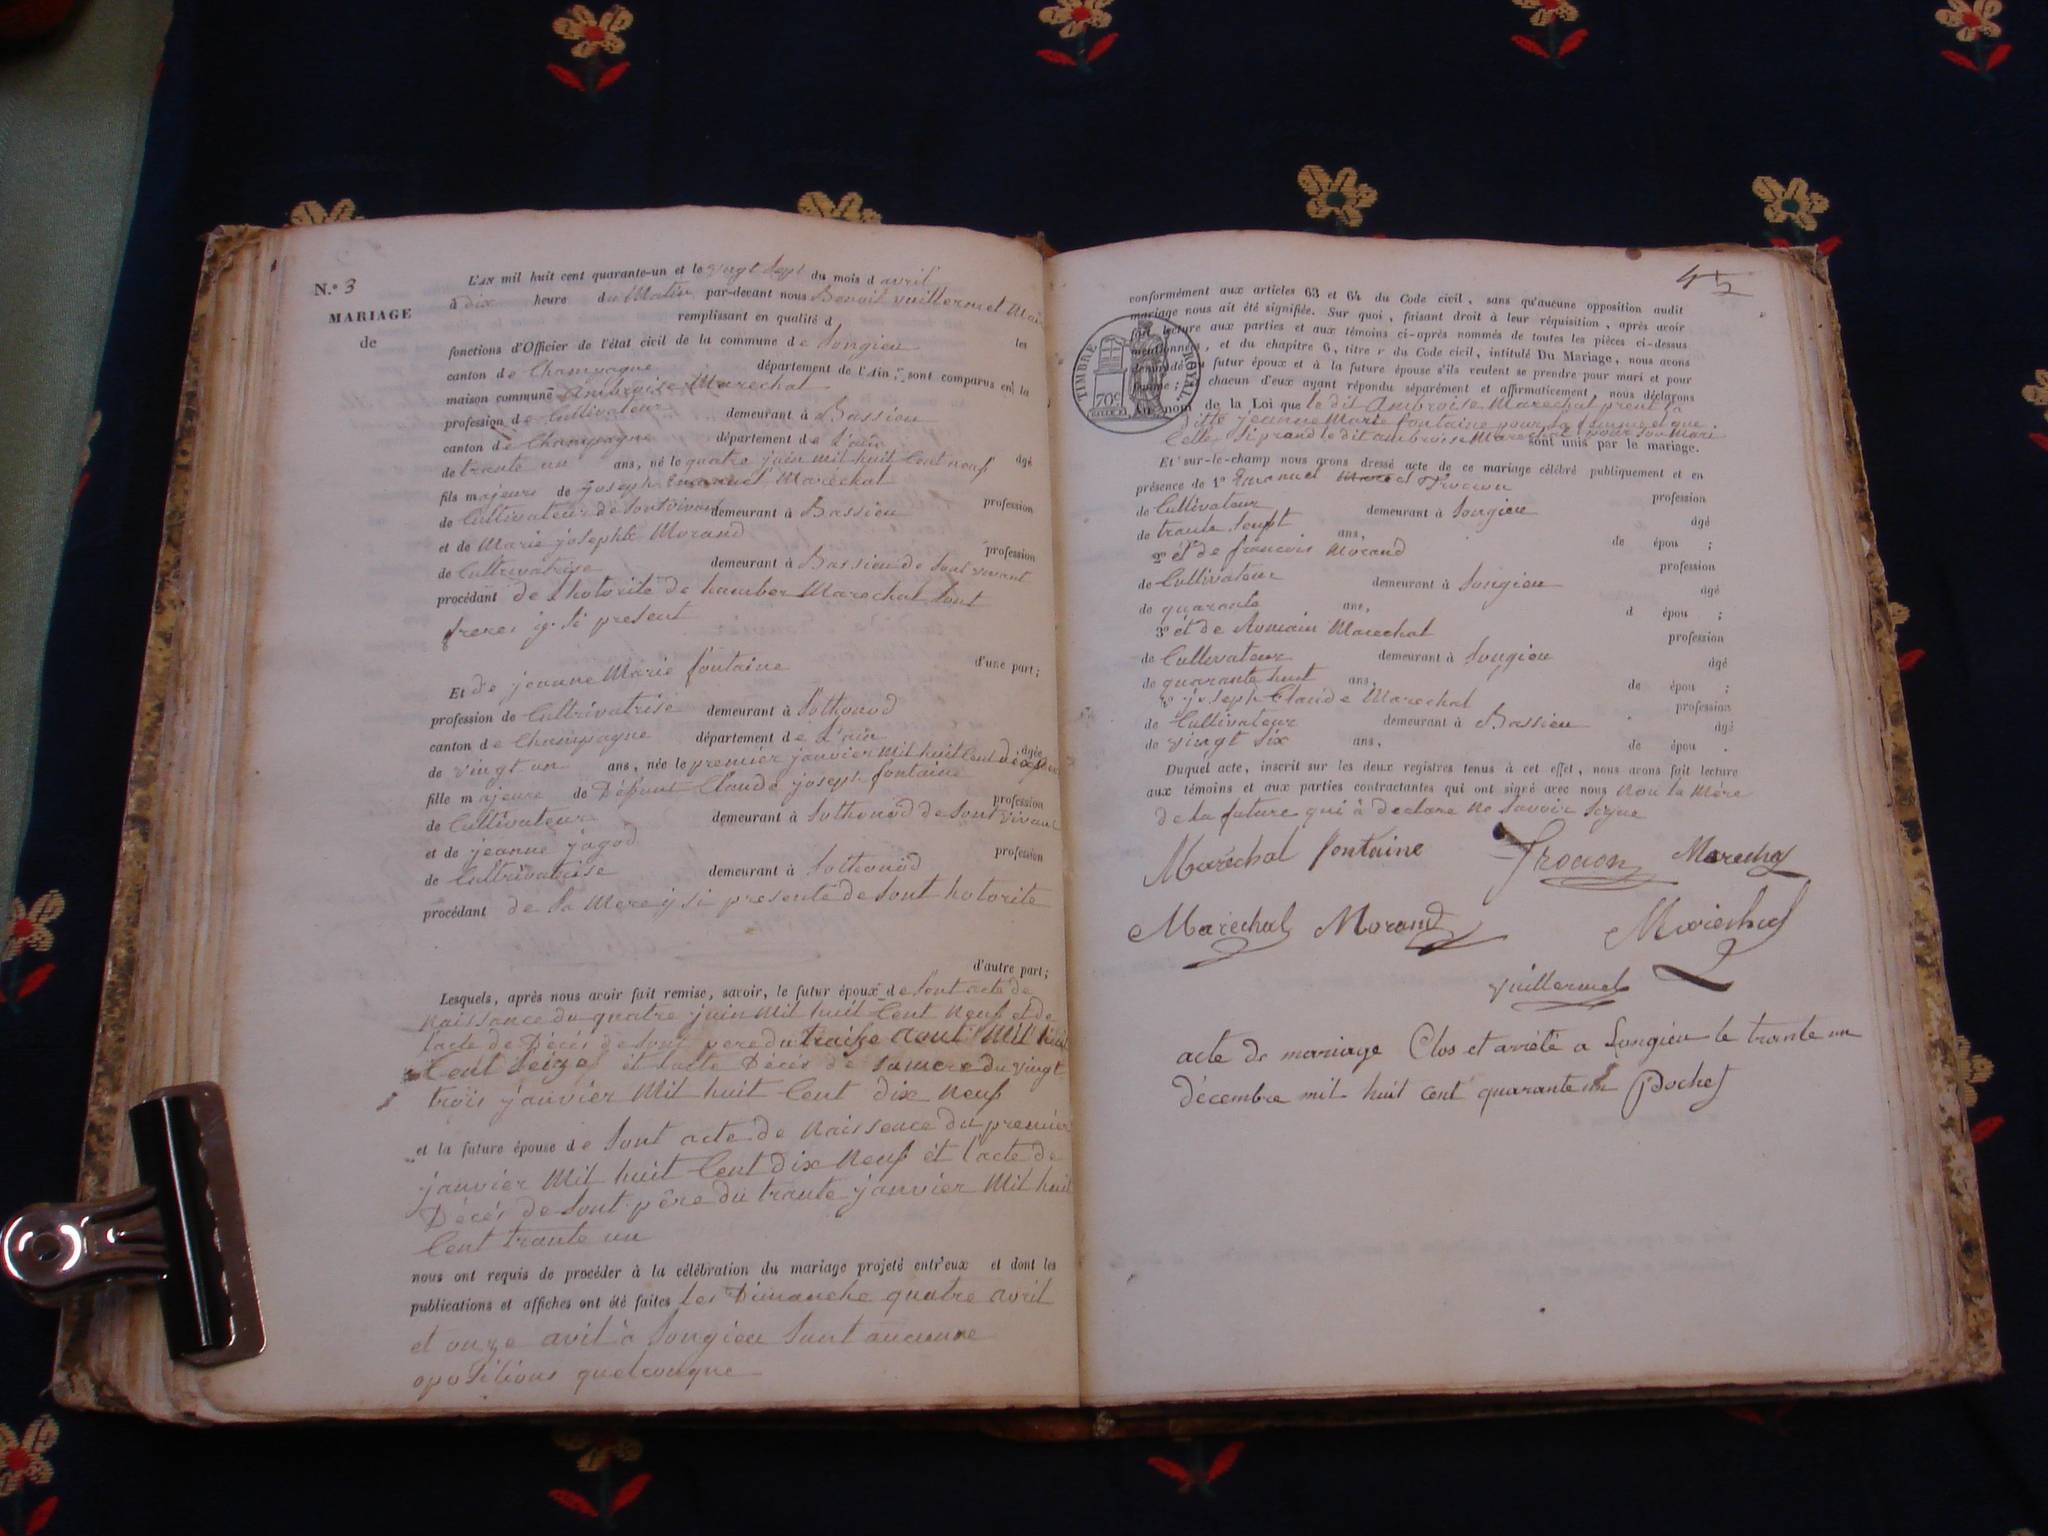 N.º 3
MARIAGE
de
L'AN mil huit cent quarante-un et le vingt sept du mois d avril
à dix heure du Matin par-devant nous Benoit vuillermet Mai
remplissant en qualité d les
fonctions d'Officier de l'état civil de la commune de Songieu
canton de Champagne département de l'Ain, sont comparus en la
maison commune Ambroise Marechal
profession de Cultivateur demeurant à Bassieu
canton de Champagne département de L'ain âgé
de trante un ans, né le quatre juin mil huit Cent neuf
fils majeure de joseph Emanuel Maréchal profession
de Cultivateur de sont vivant demeurant à Bassieu
et de Marie josephte Morand profession
de Cultrivatrise demeurant à Bassieu de sont vivant
procédant de l hotorité de hamber Marechal sont
frere, ysi present
d'une part;
Et de jeanne Marie fontaine
profession de Cultrivatrise demeurant à Sothonod
canton de Champagne département de L'ain âgée
de vingt un ans, née le premier janvier mil huit Cent dix
fille majeure de Défunt Claude joseph fontaine profession
de Cultivateur demeurant à Sothonod de sont vivant
et de jeanne jagod profession
de Cultrivatrise demeurant à Sothonod
procédant de sa Mere ysi presente de sont hotorite
d'autre part;
Lesquels, après nous avoir fait remise, savoir, le futur époux de sont acte de
naissance du quatre juin mil huit Cent neuf et de
l'acte de Décés de sont pere du traize aout Mil huit
Cent seize et lacte Décés de sa mere du vingt
trois janvier Mil huit Cent dix neuf
et la future épouse de sont acte de naissence du premier
janvier Mil huit Cent dix neuf et l'acte de
Décés de sont père du trante janvier Mil huit
Cent trante un
nous ont requis de procéder à la célébration du mariage projeté entr'eux et dont les
publications et affiches ont été faites les Dimanche quatre avril
et onze avil à Songieu sant aucunne
opositions quelconque
45
conformément aux articles 63 et 64 du Code civil, sans qu'aucune opposition audit
mariage nous ait été signifiée. Sur quoi, faisant droit à leur réquisition, après avoir
fait lecture aux parties et aux témoins ci-après nommés de toutes les pièces ci-dessus
mentionnées, et du chapitre 6, titre v du Code civil, intitulé Du Mariage, nous avons
demandé au futur époux et à la future épouse s'ils veulent se prendre pour mari et pour
femme; chacun d'eux ayant répondu séparément et affirmativement, nous déclarons
TIMBRE ROYAL
70c
Au nom de la Loi que le dit Ambroise Marechal prent la
ditte jeanne Marie fontaine pour sa femme et que
Celle si prand le dit ambroise Marechal pour son Mari
sont unis par le mariage.
Et sur-le-champ nous avons dressé acte de ce mariage célébré publiquement et en
présence de 1º Emanuel Trocion profession
de Cultivateur demeurant à Songieu âgé
de trante sept ans, de épou ;
2º et de francois Morand profession
de Cultivateur demeurant à Songieu âgé
de quarante ans, d épou ;
3º et de Romain Marechal profession
de Cultivateur demeurant à Songieu âgé
de quarante huit ans, de épou ;
4º joseph Claude Marechal profession
de Cultivateur demeurant à Bassieu âgé
de vingt six ans, de épou .
Duquel acte, inscrit sur les deux registres tenus à cet effet, nous avons fait lecture
aux témoins et aux parties contractantes qui ont signé avec nous non la Mére
de la future qui à declare ne savoir signe
Maréchal fontaine Trocion Marechal
Marechal Morand Marechal
vuillermet
acte de mariage Clos et arrêté a Songieu le trante un
décembre mil huit cent quarante un Pochet